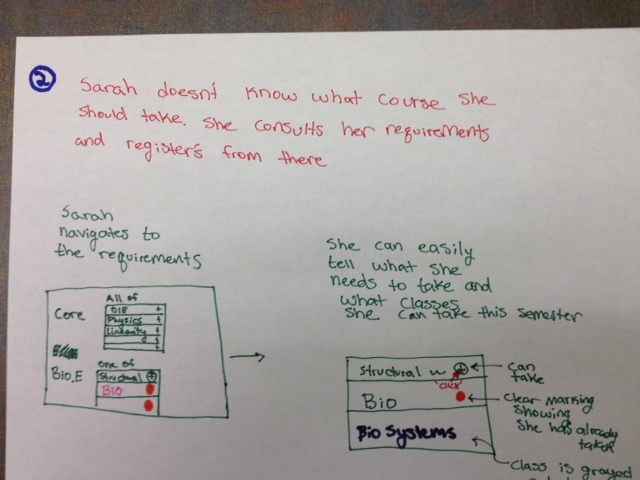 2
Sarah doesn't know what course she
should take. She consults her requirements
and register's from there
Sarah
navigates to
the requirements
Core
All of
OIE
Physics
Linearity
Bio_E
one of
Structural
BIO
She can easily
tell what she
needs to take and
what classes
she can take this semester
Structural
"click"
can
take
Bio
Clear marking
showing
she has already
taken
Bio Systems
Class is grayed